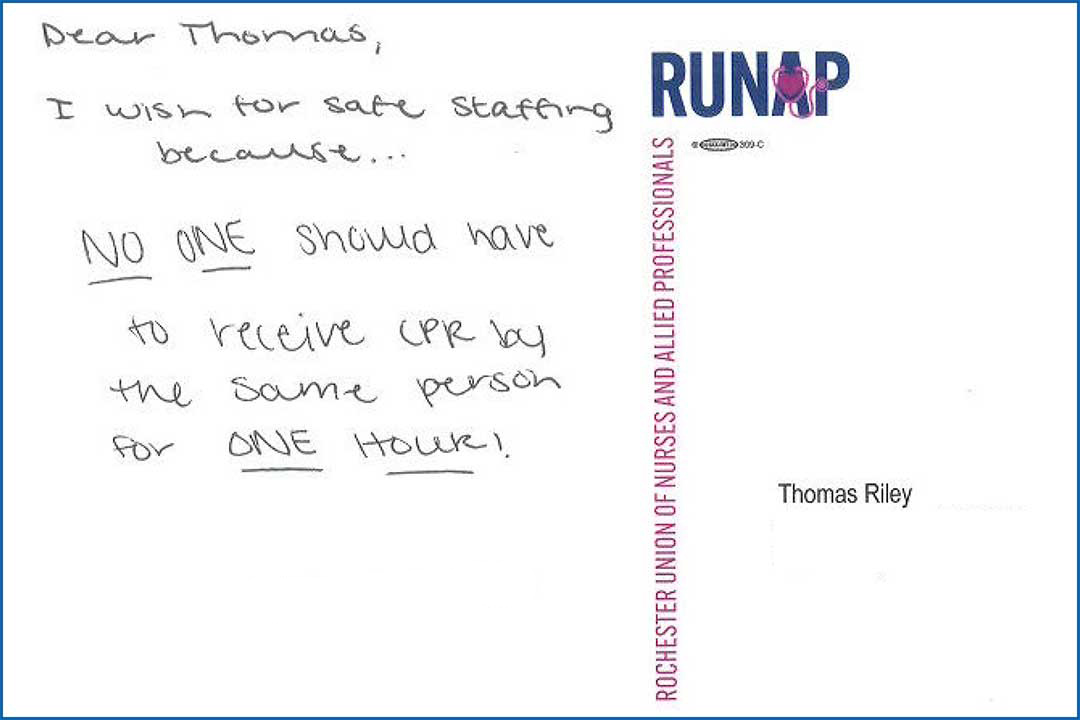 Dear Thomas,
I wish for safe staffing
because...
NO ONE should have
to receive CPR by
the same person
for ONE HOUR!
RUNAP
309-C
ROCHESTER UNION OF NURSES AND ALLIED PROFESSIONALS
Thomas Riley